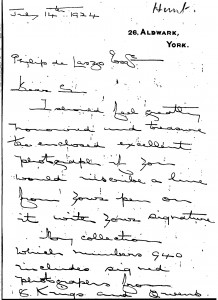 July 14th 1924
Hunt.
26, ALDWARK,
YORK.
Philip de Laszlo Esqre
Dear Sir
I should feel greatly
honoured and treasure
the enclosed excellent
photograph if you
would inscribe a line
from your pen on
it with your signature
My collection
which numbers 940
includes signed
photographs from
8 Kings and Queens